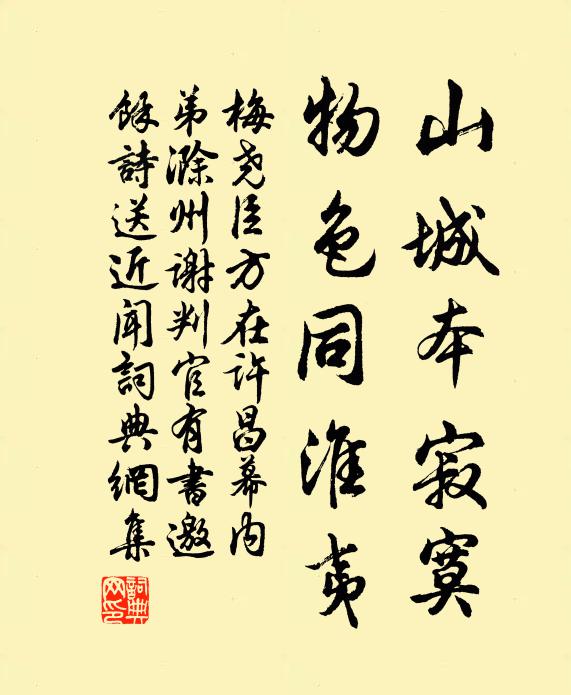 山城本寂寞
物色同淮夷
梅尧臣方在许昌幕内
弟滁州谢判官有书邀
馀詩送近闻詞典網集
詞典网印